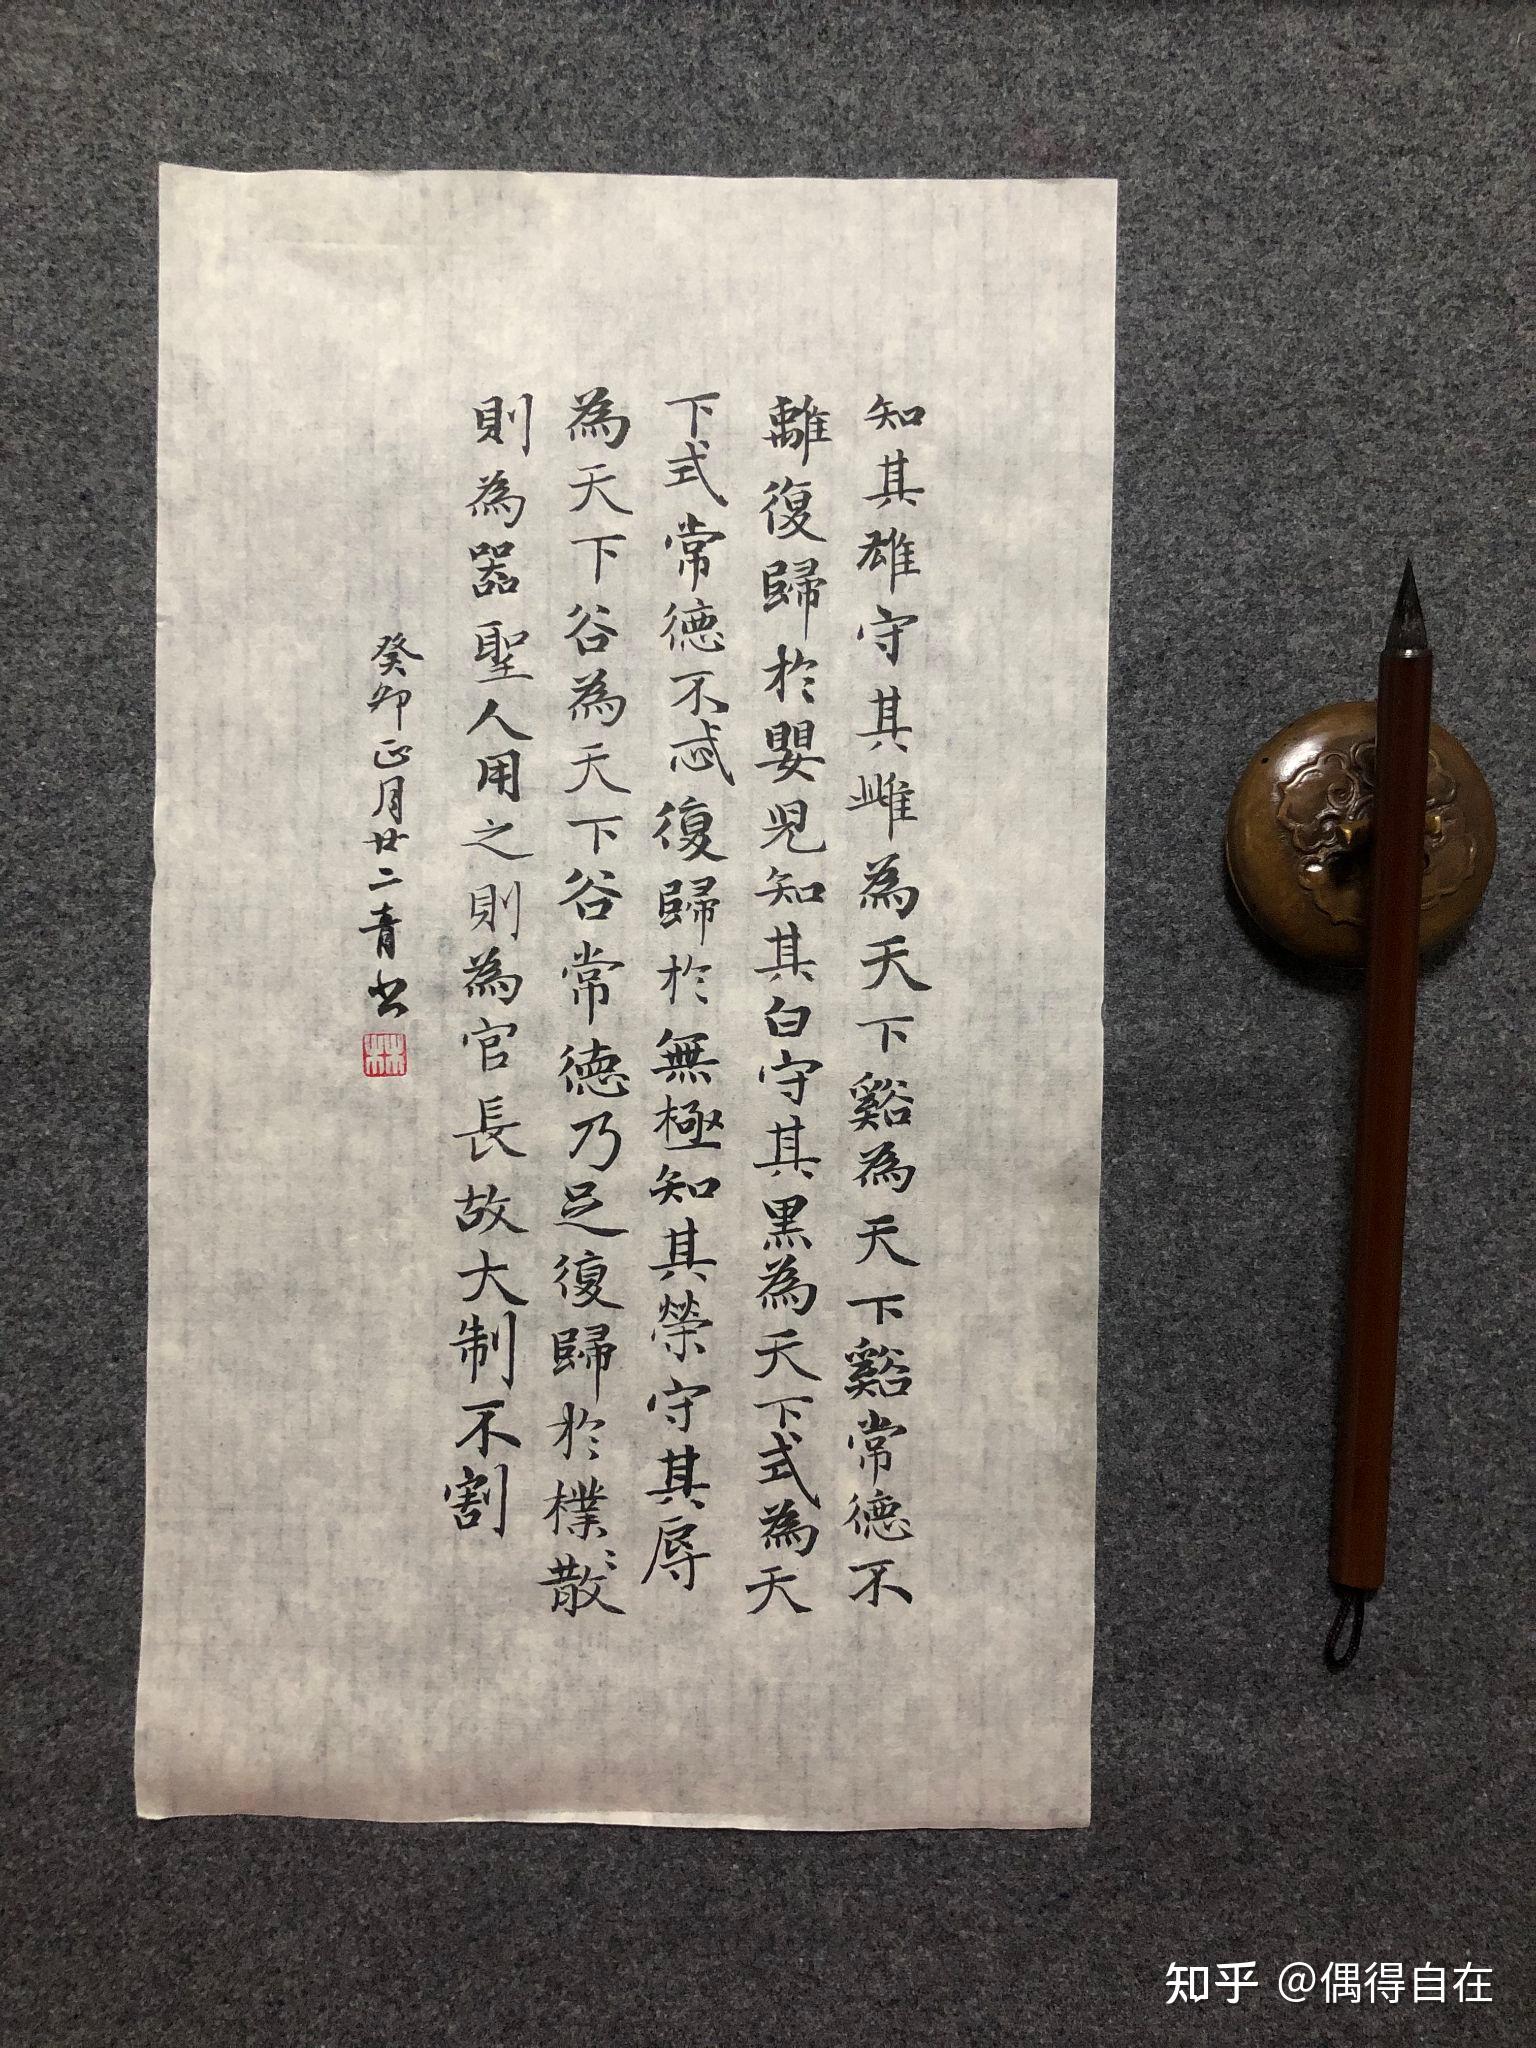 知其雄守其雌為天下谿為天下谿常德不
離復歸於嬰兒知其白守其黑為天下式為天
下式常德不忒復歸於無極知其榮守其辱
為天下谷為天下谷常德乃足復歸於樸〻散
則為器聖人用之則為官長故大制不割
癸卯正月廿二青书
知乎 @偶得自在